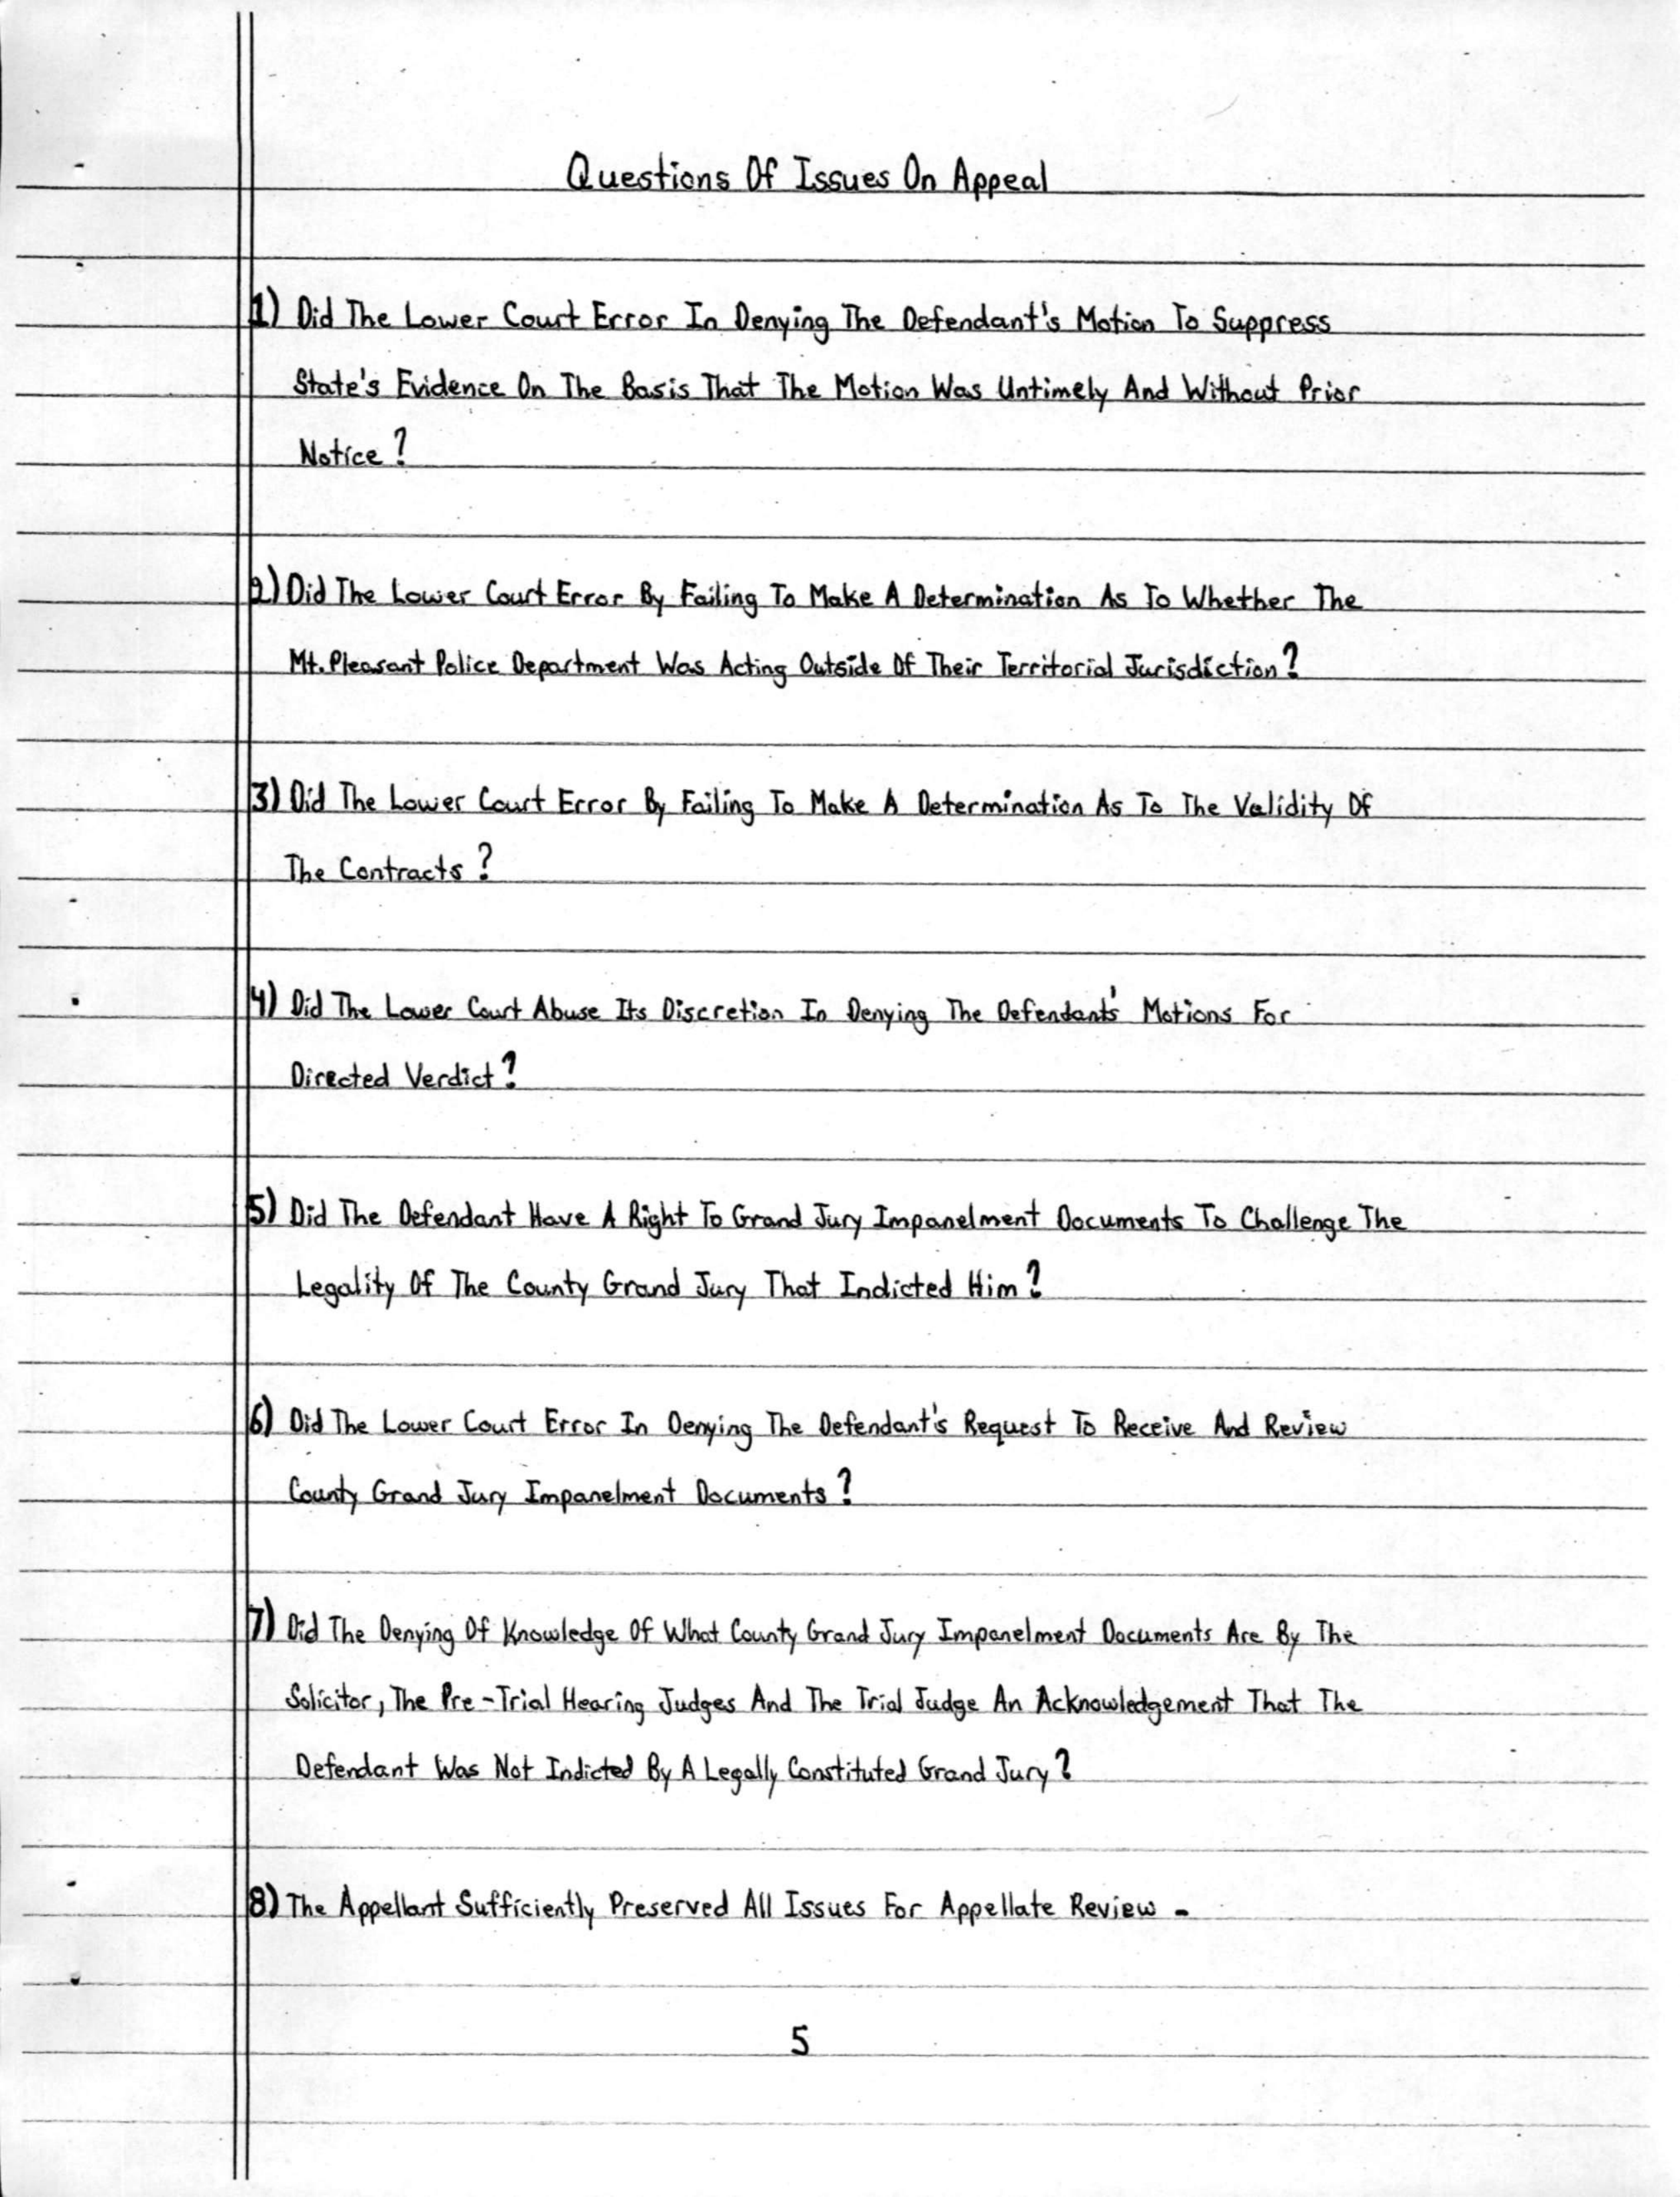 Questions Of Issues On Appeal
1) Did The Lower Court Error In Denying The Defendant's Motion To Suppress
State's Evidence On The Basis That The Motion Was Untimely And Without Prior
Notice?
2) Did The Lower Court Error By Failing To Make A Determination As To Whether The
Mt. Pleasant Police Department Was Acting Outside Of Their Territorial Jurisdiction?
3) Did The Lower Court Error By Failing To Make A Determination As To The Validity Of
The Contracts?
4) Did The Lower Court Abuse Its Discretion In Denying The Defendants' Motions For
Directed Verdict?
5) Did The Defendant Have A Right To Grand Jury Impanelment Documents To Challenge The
Legality Of The County Grand Jury That Indicted Him?
6) Did The Lower Court Error In Denying The Defendant's Request To Receive And Review
County Grand Jury Impanelment Documents?
7) Did The Denying Of Knowledge Of What County Grand Jury Impanelment Documents Are By The
Solicitor, The Pre-Trial Hearing Judges And The Trial Judge An Acknowledgement That The
Defendant Was Not Indicted By A Legally Constituted Grand Jury?
8) The Appellant Sufficiently Preserved All Issues For Appellate Review -
5